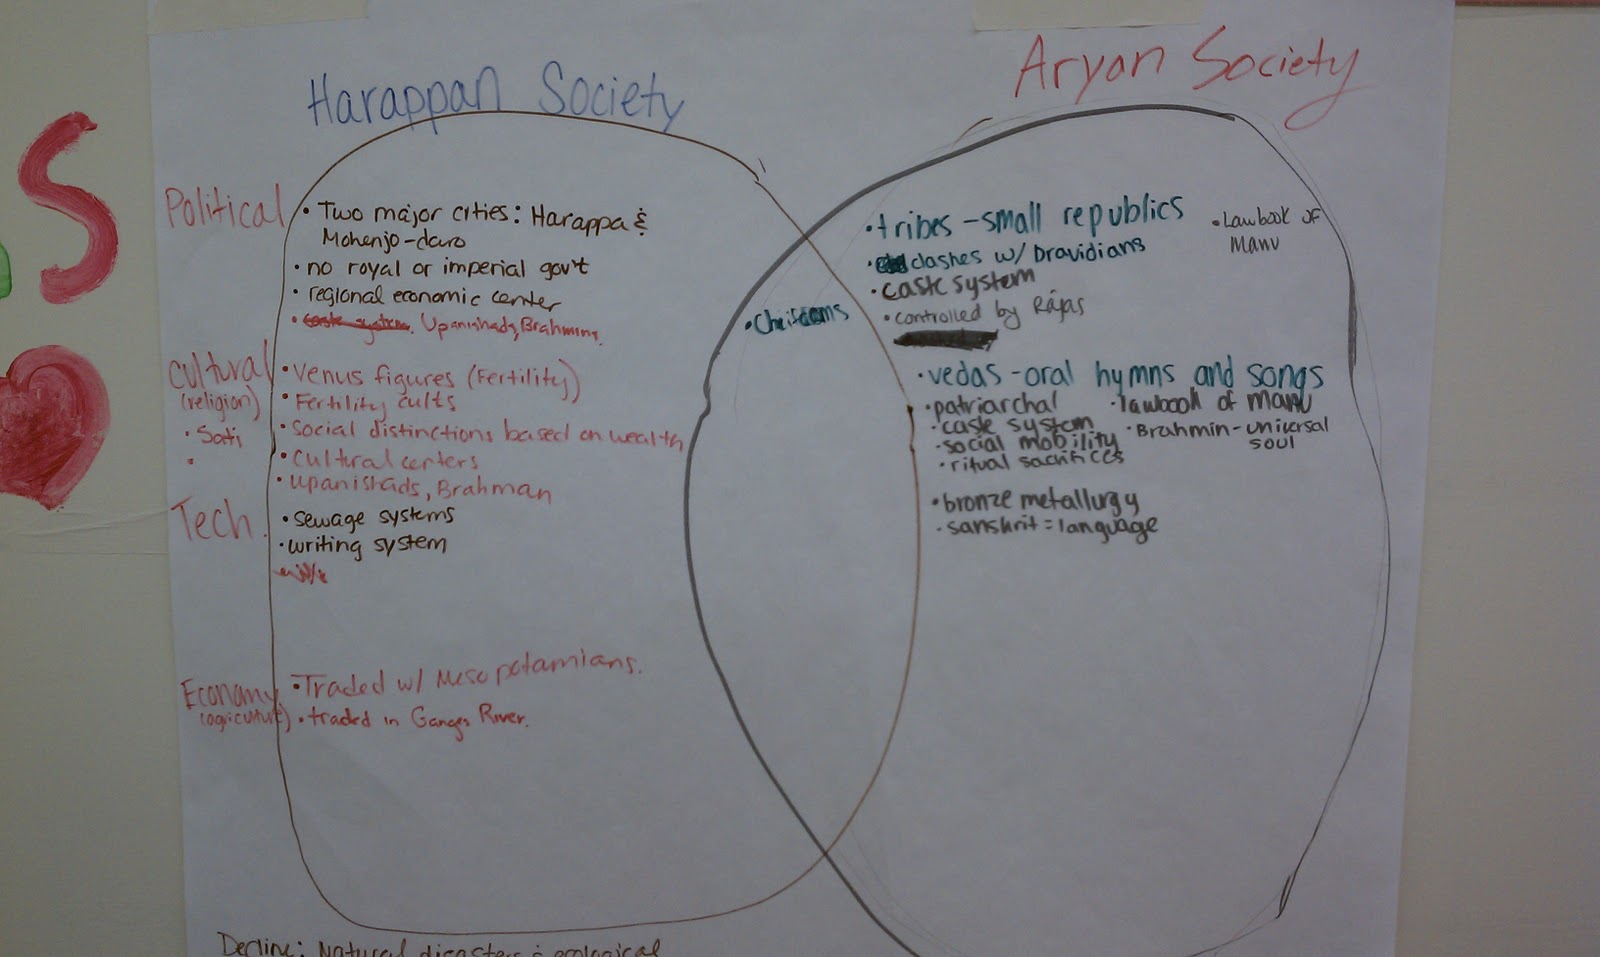 Harappan Society
Aryan Society
S
Political
• Two major cities: Harappa &
Mohenjo-daro
• no royal or imperial gov't
• regional economic center
• caste system. Upanishads, Brahmins.
Cultural
(religion)
• Sati
•
• Venus figures (Fertility)
• Fertility cults
• Social distinctions based on wealth
• Cultural centers
• Upanishads, Brahman
Tech.
• sewage systems
• writing system
Economy
(agriculture)
• Traded w/ Mesopotamians.
• traded in Ganges River.
Decline: Natural disasters & ecological
• Cheifdoms
• tribes - small republics
• clashes w/ Dravidians
• caste system
• controlled by Rajas
• Lawbook of
Manu
• vedas - oral hymns and songs
• patriarchal
• caste system
• social mobility
• ritual sacrifices
• lawbook of manu
• Brahmin - universal
soul
• bronze metallurgy
• sanskrit = language